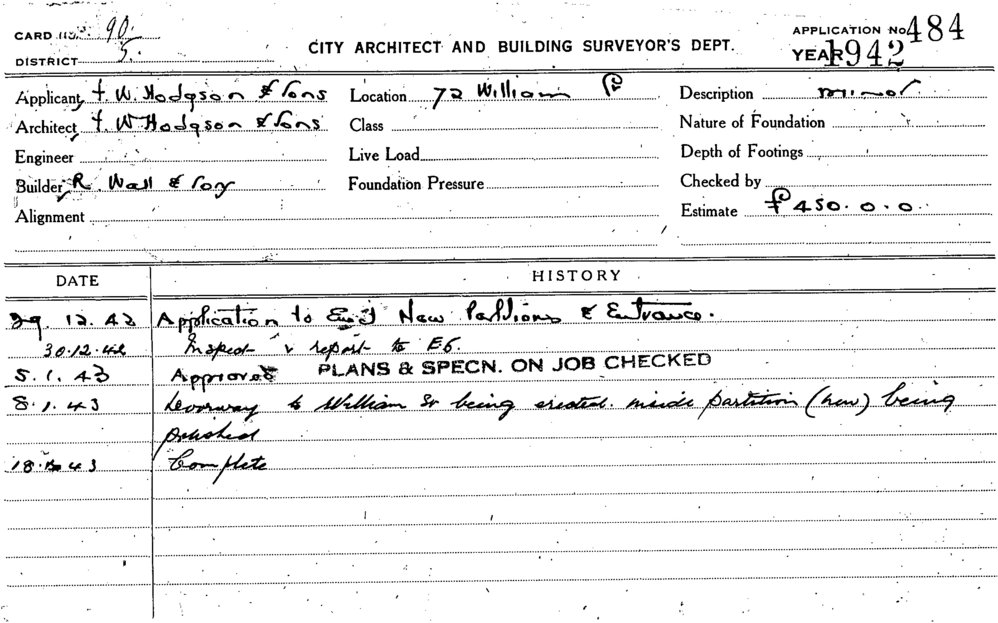 CARD No. 90 APPLICATION No 484
DISTRICT 5. CITY ARCHITECT AND BUILDING SURVEYOR'S DEPT. YEAR 1942
Applicant, F. W. Hodgson & Sons Location 72 William St Description minor
Architect, F. W Hodgson & Sons Class Nature of Foundation
Engineer Live Load Depth of Footings
Builder, R. Wall & Foundation Pressure Checked by
Alignment Estimate £450.0.0
DATE HISTORY
29.12.42 Application to New Partitions & Entrance.
30.12.42 Inspect & report to E6.
5.1.43 Approved PLANS & SPECN. ON JOB CHECKED
8.1.43 Doorway to William St being erected. inside partition (new) being
polished
18. 43 Complete